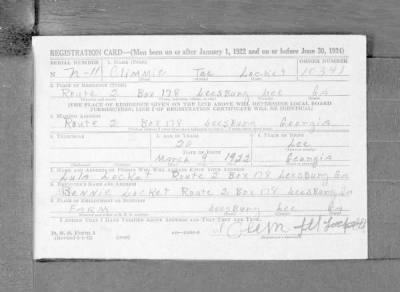 REGISTRATION CARD—(Men born on or after January 1, 1922 and on or before June 30, 1924)
SERIAL NUMBER 1. NAME (Print) ORDER NUMBER
N N-11 Climmie Tae Locket 10341
2. PLACE OF RESIDENCE (Print)
Route 2 Box 178 Leesburg Lee Ga
[THE PLACE OF RESIDENCE GIVEN ON THE LINE ABOVE WILL DETERMINE LOCAL BOARD
JURISDICTION; LINE 2 OF REGISTRATION CERTIFICATE WILL BE IDENTICAL]
3. MAILING ADDRESS
Route 2 Box 178 Leesburg Georgia
4. TELEPHONE 5. AGE IN YEARS 6. PLACE OF BIRTH
20 Lee
DATE OF BIRTH
March 9 1922 Georgia
7. NAME AND ADDRESS OF PERSON WHO WILL ALWAYS KNOW YOUR ADDRESS
Lula Locket Route 2 Box 178 Leesburg Ga
8. EMPLOYER'S NAME AND ADDRESS
Bennie Locket Route 2 Box 178 Leesburg Ga
9. PLACE OF EMPLOYMENT OR BUSINESS
Farm Leesburg Lee Ga
I AFFIRM THAT I HAVE VERIFIED ABOVE ANSWERS AND THAT THEY ARE TRUE.
D. S. S. Form 1